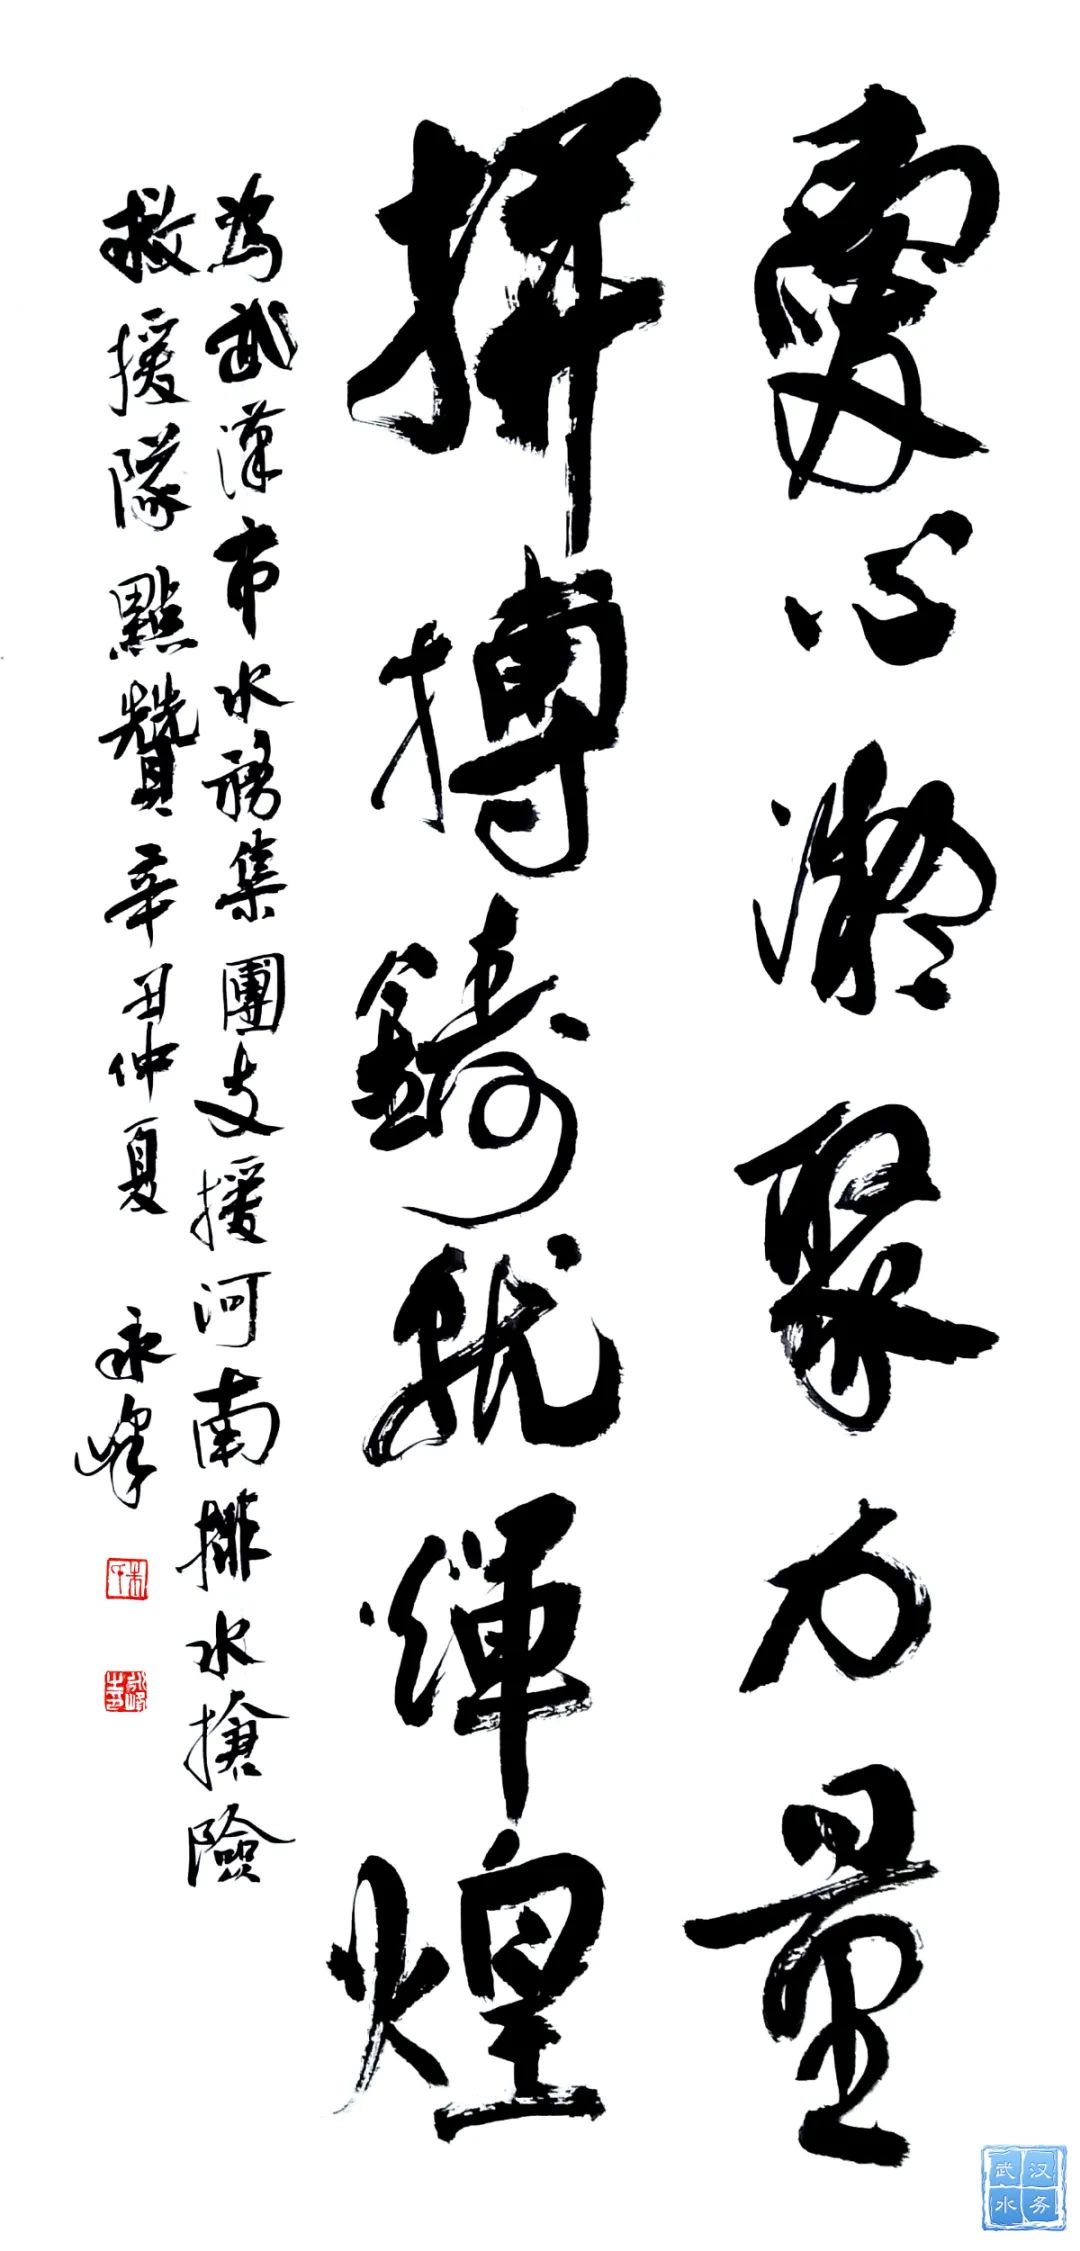 愛心凝聚力量
拼搏鑄就輝煌
為武漢市水務集團支援河南排水搶險
救援隊點贊辛丑仲夏
永峰
武汉
水务